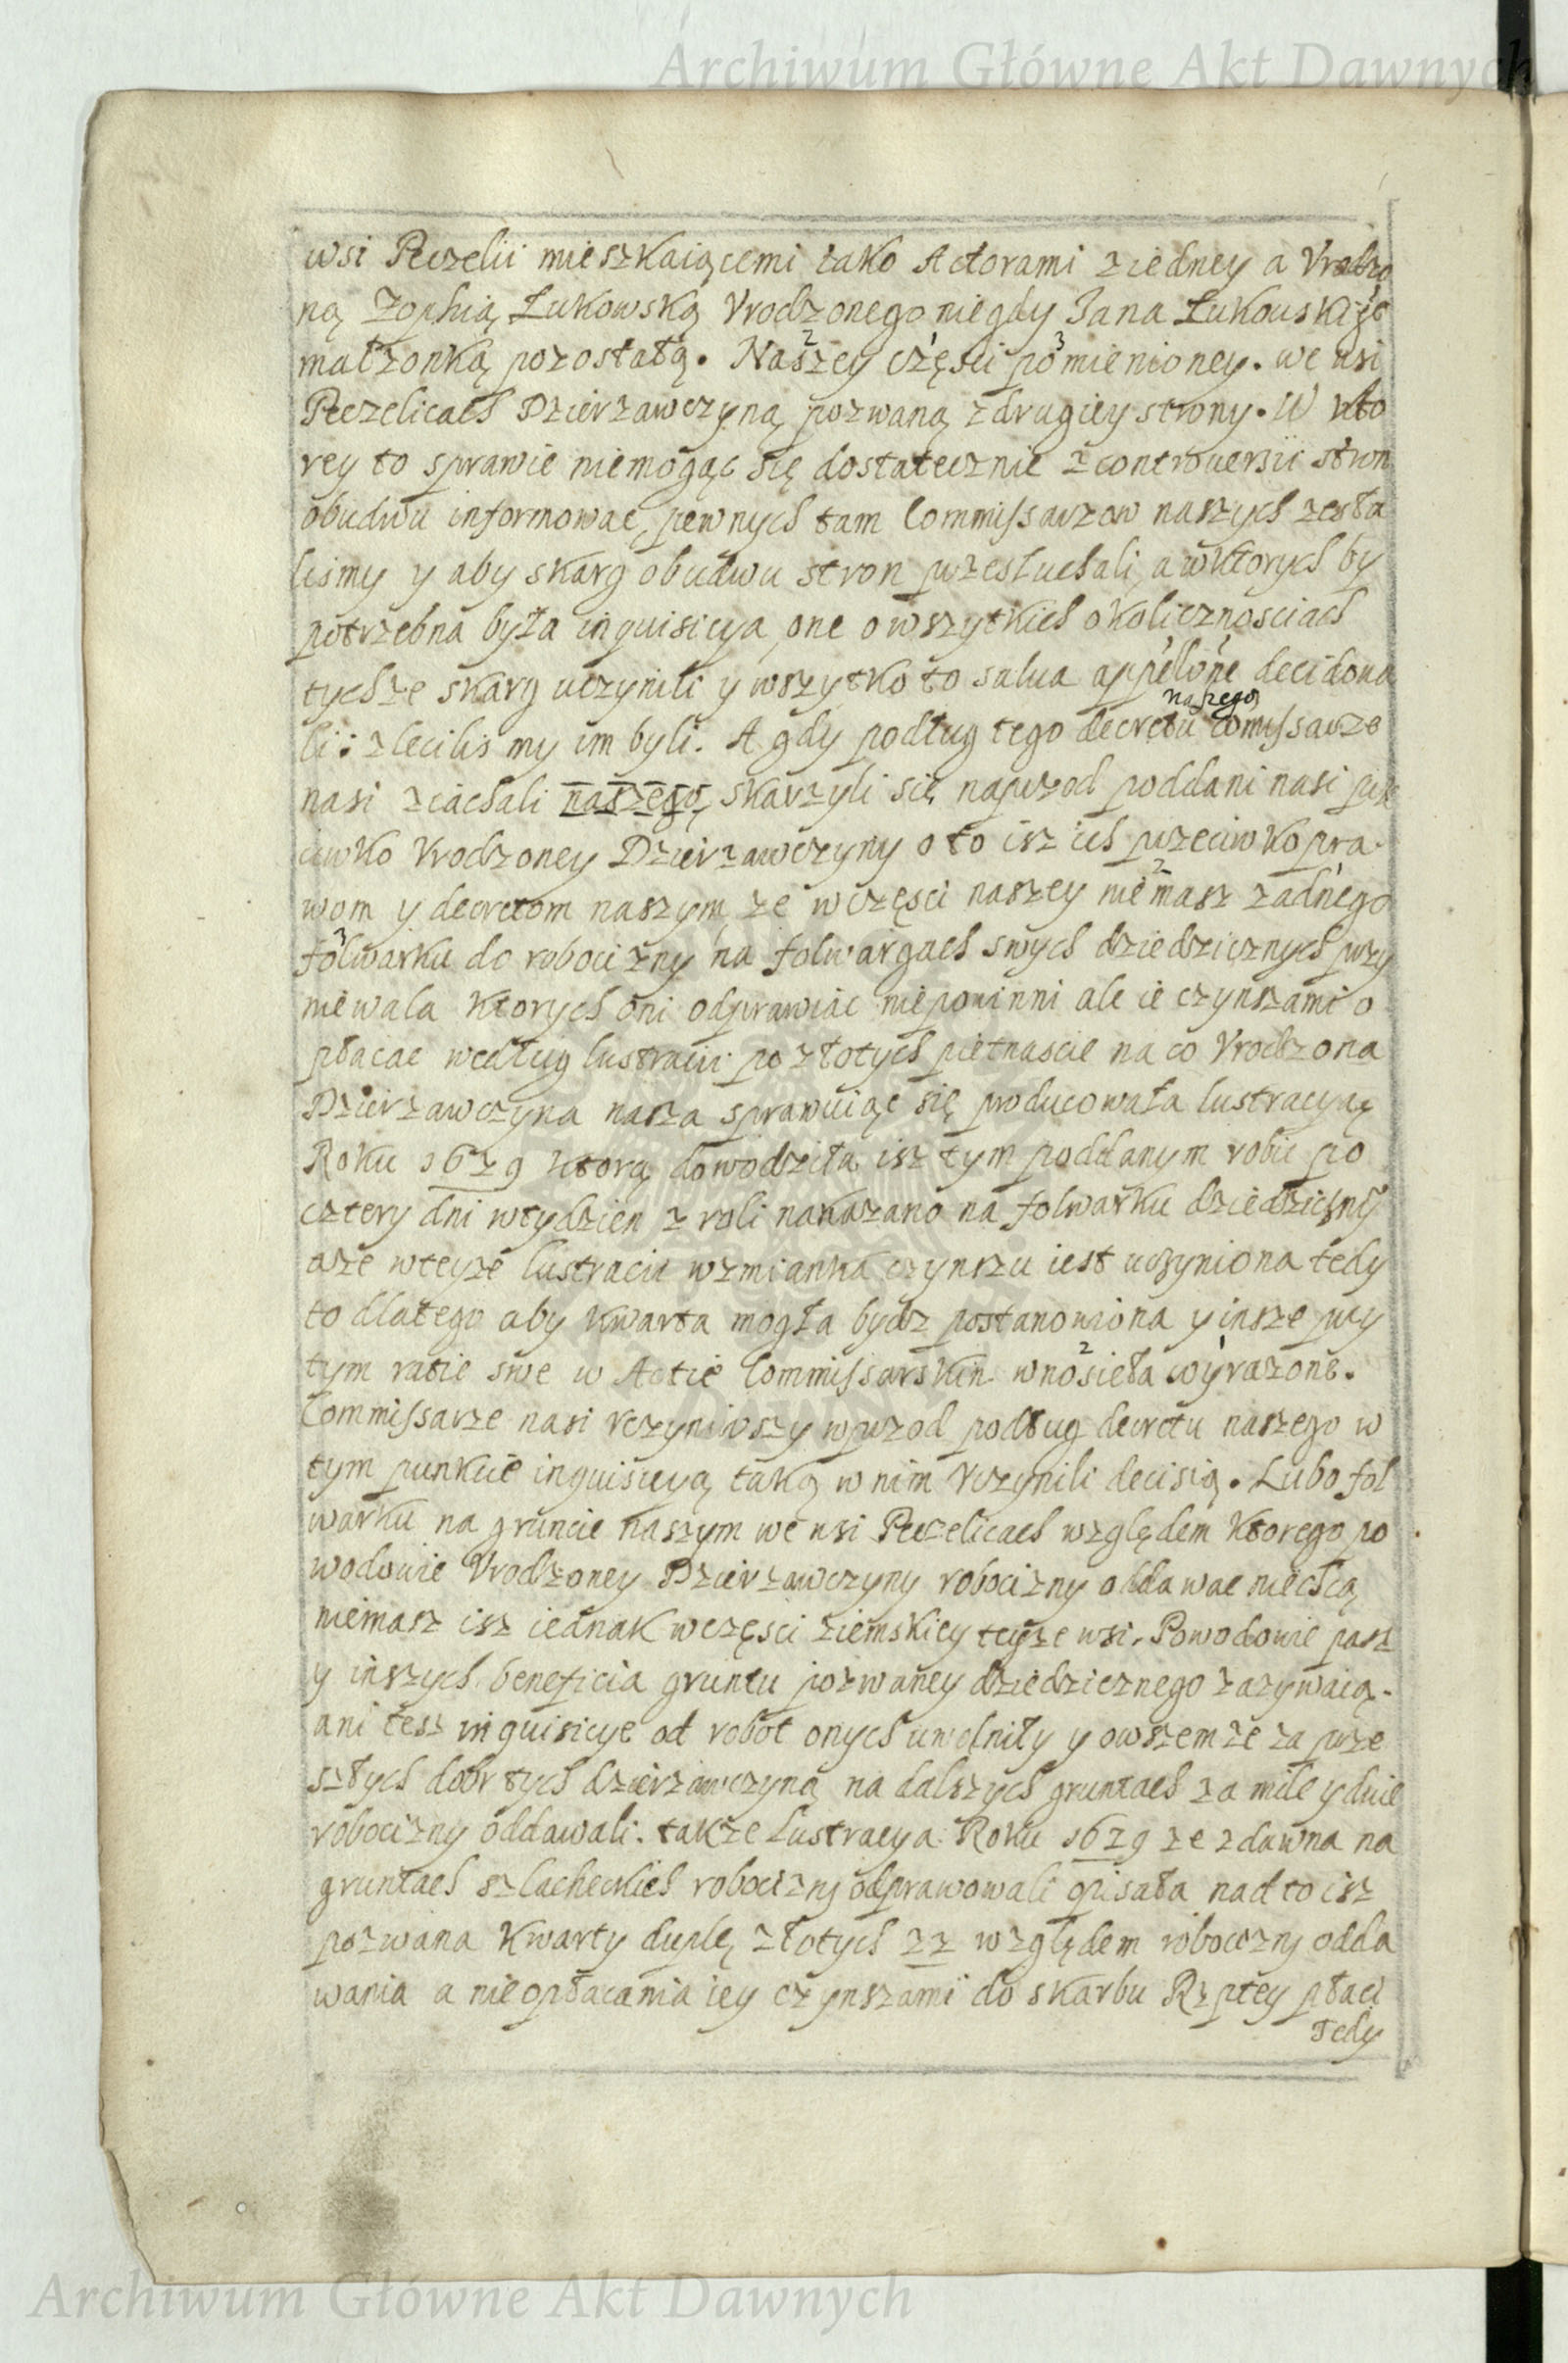 Archiwum Główne Akt Dawnych
wsi Pęczelii mieszkaiącemi iako Actorami z iedney a Vrodzo
ną Zophią Łukowską Vrodzonego niegdy Jana Łukouskie°
małzonką pozostałą. Naszey części pomienioney. we wsi
Pęczelicach Dzierzawczyną pozwaną z drugiey strony. W kto
rey to sprawie niemogąc się dostatecznie z controuersii stron
obudwu informowac, pewnych tam Commissarzow naszych zesła
lismy y aby skarg obudwu stron przesłuchali, a wktorych by
potrzebna była inquisicya, one o wszytkich okolicznosciach
tychze skarg uczynili y wszytko to salua appellōne decidowa
li: zlecilismy im byli. A gdy podług tego decretu naszego Comissarze
nasi ziachali naszego skarzyli się naprzod poddani nasi prze
ciwko Vrodzoney Dzierzawczyny o to isz ich przeciwko pra
wom y decretom naszym ze wczęsci naszey niemasz zadnego
folwarku do robocizny na folwargach swych dziedzicznych przy
niewala ktorych oni odprawiac niepowinni ale ie czynszami o
płacac według lustracii po złotych pietnascie na co Vrodzona
Dzierzawczyna nasza sprawuiąc się producowała lustracyą
Roku 1629 ktorą dowodziła isz tym poddanym robic po
cztery dni wtydzien z roli nakazano na folwarku dziedziczny
aze wteyze lustracii wzmianka czynszu iest uczyniona tedy
to dlatego aby kwarta mogła bydz postanowiona y insze przy
tym ratie swe w Actie Commissarskim wnosieła wyrazone.
Commissarze nasi vczyniwszy wprzod podług decretu naszego w
tym punkcie inquisicyą taką w nim vczynili decisią. Lubo fol
warku na gruncie naszym we wsi Pęczelicach względem ktorego po
wodowie Vrodzoney Dzierzawczyny robocizny oddawac niechcą
niemasz isz iednak wczęsci ziemskiey teyze wsi. Powodowie pasz
y inszych beneficia gruntu pozwaney dziedzicznego zazywaią.
ani tesz inquisicye od robot onych uwolniły y owszem ze za prze
szłych dobr tych dzierzawczyną na dalszych gruntach za mile y dwie
robocizny oddawali. takze Lustracya Roku 1629 ze zdawna na
gruntach szlacheckich robocizny odprawowali opisała nad to isz
pozwana Kwarty duplę złotych 22 względem robocizny odda
wania a nieopłacania iey czynszami do skarbu Rzptey płaci
Tedy
Archiwum Główne Akt Dawnych